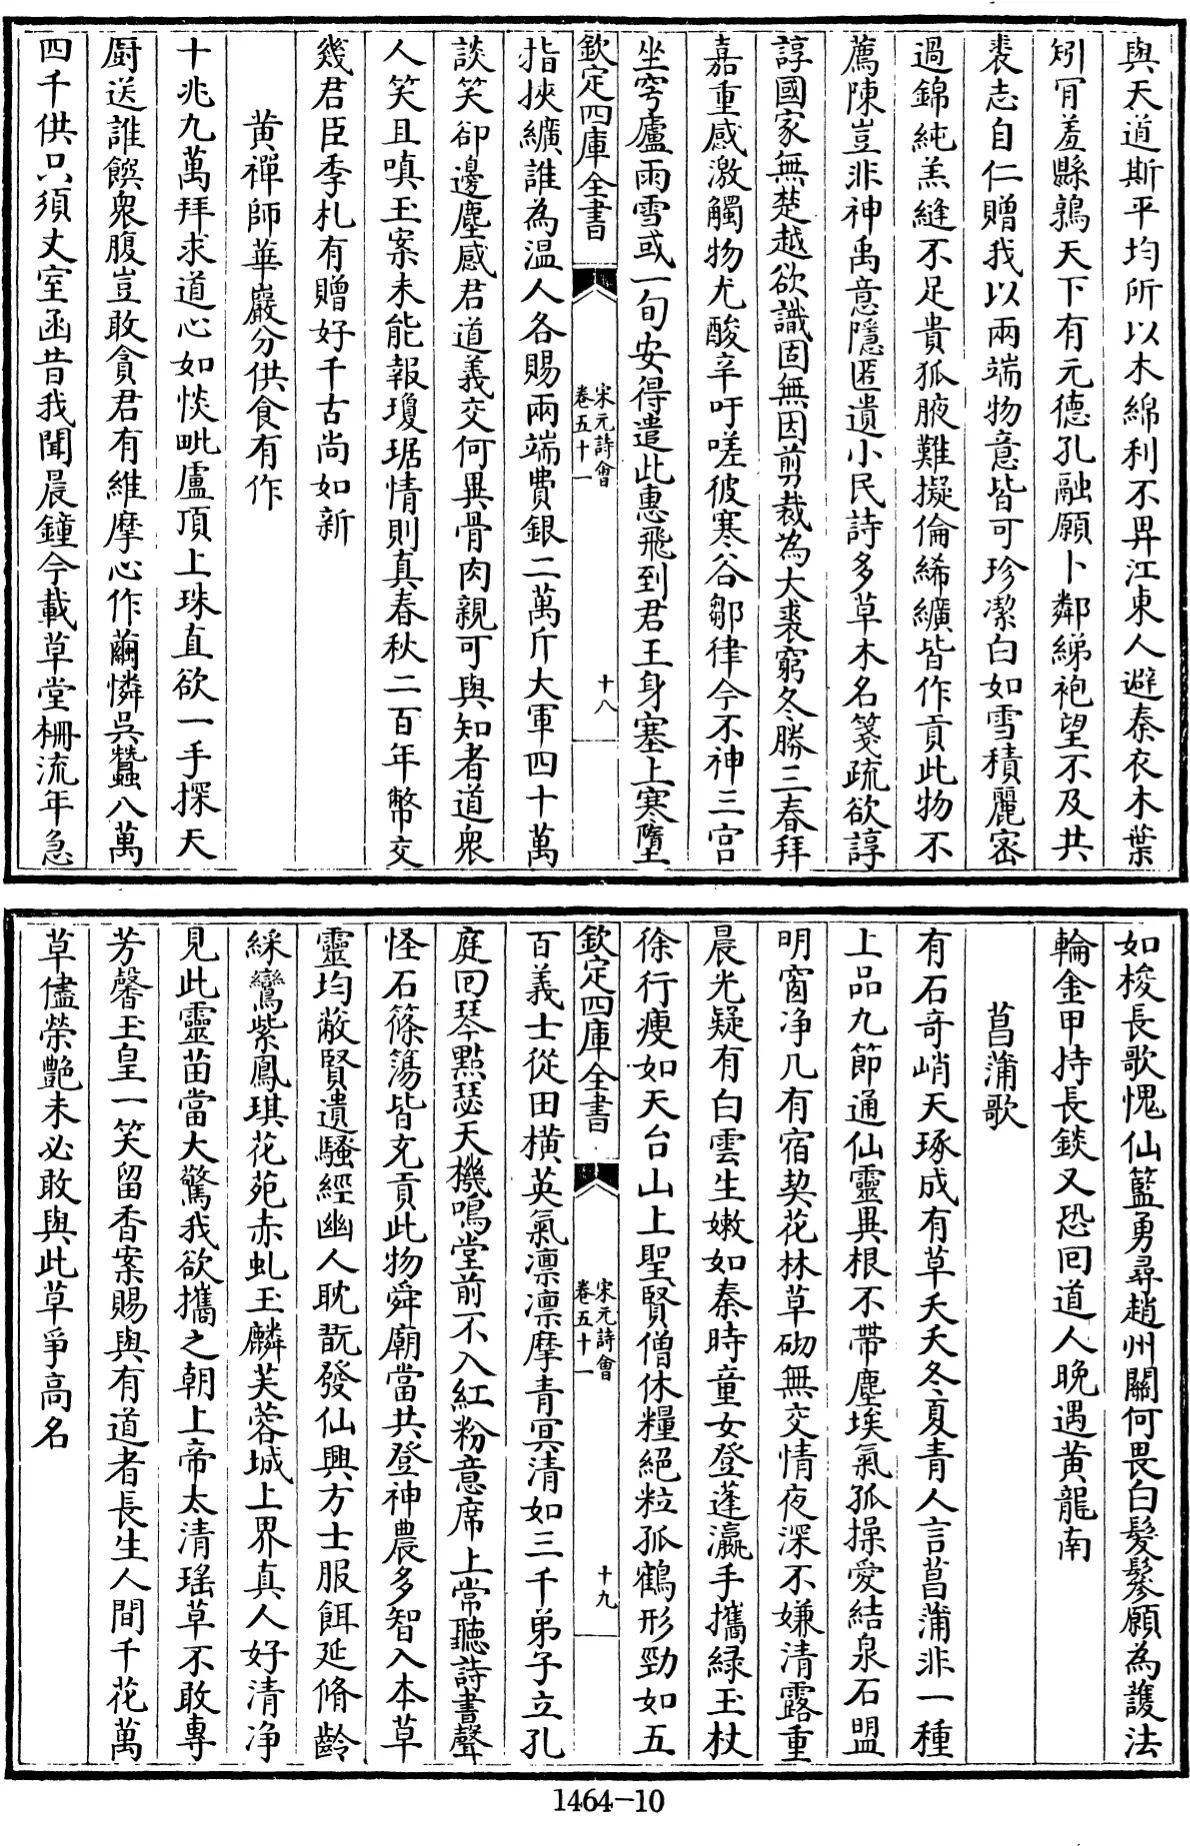 與天道斯平均所以木綿利不畀江東人避秦衣木葉
矧肎羞縣鶉天下有元德孔融願卜鄰綈袍望不及共
裘志自仁贈我以兩端物意皆可珍潔白如雪積麗密
過錦純羔縫不足貴狐腋難擬倫絺纊皆作貢此物不
薦陳豈非神禹意隱匿遺小民詩多草木名箋疏欲諄
諄國家無楚越欲識固無因剪裁為大裘窮冬勝三春拜
嘉重感激觸物尤酸辛吁嗟彼寒谷鄒律今不神三宫
坐穹廬雨雪或一旬安得遣此惠飛到君王身塞上寒墮
欽定四庫全書
宋元詩會
卷五十一
十八
指挾纊誰為温人各賜兩端費銀二萬斤大軍四十萬
談笑卻邊塵感君道義交何異骨肉親可與知者道衆
人笑且嗔玉案未能報瓊琚情則真春秋二百年幣交
幾君臣季札有贈好千古尚如新
黄禪師華巖分供食有作
十兆九萬拜求道心如惔毗盧頂上珠直欲一手探天
厨送誰饌衆腹豈敢貪君有維摩心作繭憐吳蠶八萬
四千供只須丈室函昔我聞晨鐘今載草堂柵流年急
如梭長歌愧仙籃勇尋趙州關何畏白髮鬖願為護法
輪金甲持長錟又恐回道人晚遇黄龍南
菖蒲歌
有石奇峭天琢成有草夭夭冬夏青人言菖蒲非一種
上品九節通仙靈異根不帶塵埃氣孤操愛結泉石盟
明窗净几有宿契花林草砌無交情夜深不嫌清露重
晨光疑有白雲生嫩如秦時童女登蓬瀛手攜緑玉杖
徐行瘦如天台山上聖賢僧休糧絕粒孤鶴形勁如五
欽定四庫全書
宋元詩會
卷五十一
十九
百義士從田横英氣凛凛摩青冥清如三千弟子立孔
庭回琴點瑟天機鳴堂前不入紅粉意席上常聽詩書聲
怪石篠簜皆充貢此物舜廟當共登神農多智入本草
靈均蔽賢遺騷經幽人耽翫發仙興方士服餌延脩齡
綵鸞紫鳳琪花苑赤虬玉麟芙蓉城上界真人好清净
見此靈苗當大驚我欲攜之朝上帝太清瑤草不敢專
芳馨玉皇一笑留香案賜與有道者長生人間千花萬
草儘榮艷未必敢與此草爭高名
1464-10